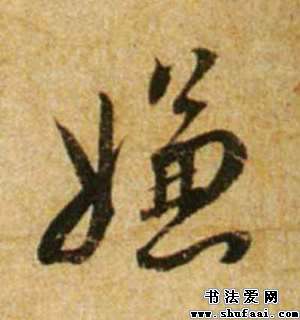 嫌
书法爱网
www.shufaai.com